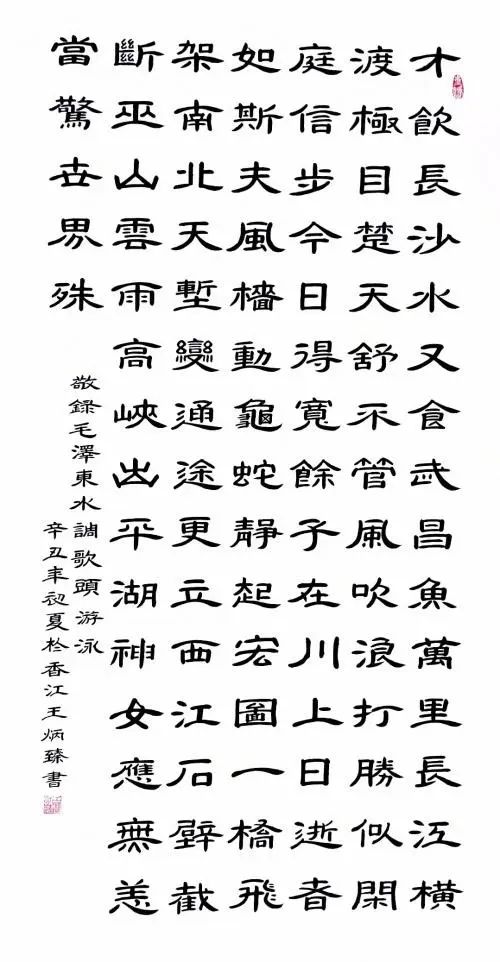 才飲長沙水又食武昌魚萬里長江橫
渡極目楚天舒不管風吹浪打勝似閑
庭信步今日得寬餘子在川上曰逝者
如斯夫風檣動龜蛇靜起宏圖一橋飛
架南北天塹變通途更立西江石壁截
斷巫山雲雨高峽出平湖神女應無恙
當驚世界殊
敬錄毛澤東水調歌頭游泳
辛丑年初夏於香江王炳臻書